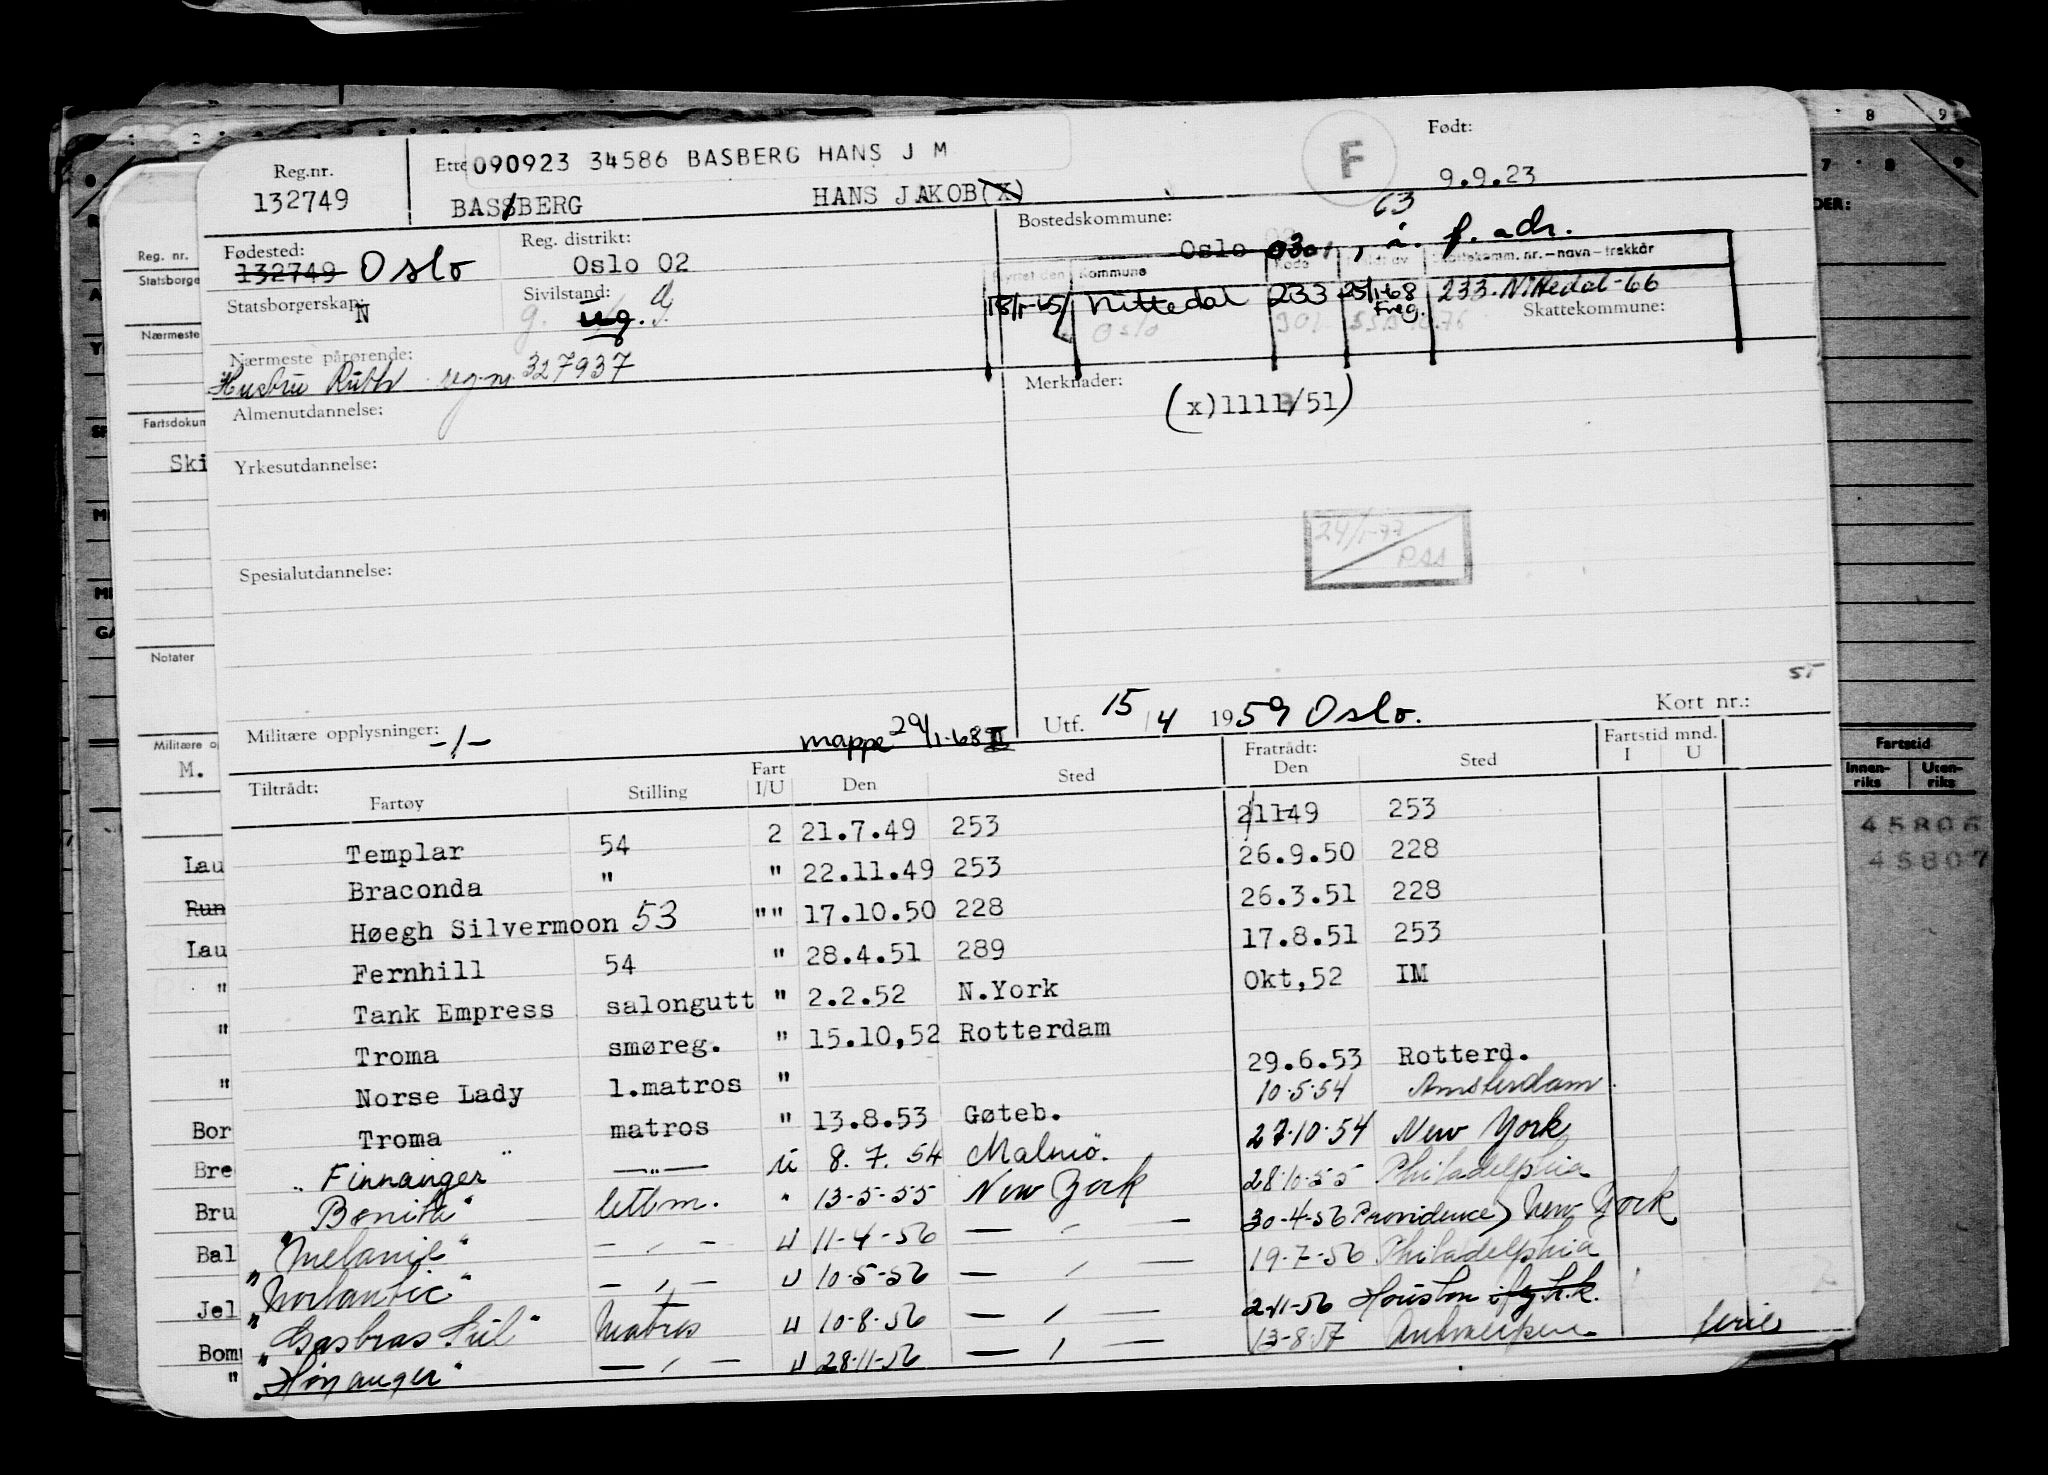 Reg.nr. 132749
090923 34586 BASBERG HANS J M
BASSBERG HANS JAKOB(X)
F
Født: 9.9.23
Fødested: 132749 Oslo
Reg. distrikt: Oslo 02
Bostedskommune: Oslo 0301, f. adr.
63
Statsborgerskap: N
Sivilstand: ug. g.
Kommune Kode Skattekomm. nr.–navn–trekkår
Nittedal 233 25/1-68 Freg. 233-Nittedal-66
Oslo 301
Skattekommune:
Nærmeste pårørende: Hustru Ruth reg.nr. 327937
Merknader: (x)1111/51)
Almenutdannelse:
Yrkesutdannelse:
24/1-77
PSS
Spesialutdannelse:
Militære opplysninger: -/-
mappe 29/1-68 II
Utf. 15/4 1959 Oslo.
Kort nr.:
Tiltrådt: Fartøy Stilling Fart I/U Den Sted Fratrådt: Den Sted Fartstid mnd. I U
Templar 54 2 21.7.49 253 21149 253
Braconda " " 22.11.49 253 26.9.50 228
Høegh Silvermoon 53 "" 17.10.50 228 26.3.51 228
Fernhill 54 " 28.4.51 289 17.8.51 253
Tank Empress salongutt " 2.2.52 N.York Okt,52 IM
Troma smøreg. " 15.10,52 Rotterdam
Norse Lady l.matros " 29.6.53 Rotterd.
Troma matros " 13.8.53 Gøteb. 10.5.54 Amsterdam
"Finnanger" —"— U 8.7.54 Malmö. 27.10.54 New York
"Bonita" lettm. " 13-5-55 New York 28.10.55 Philadelphia
"Melanie" — " — U 11-4-56 — " — 30-4-56 Providence) New York
"Norlantic" — " — U 10-5-56 — " — 19-7-56 Philadelphia
"Gasbras Sul" Matros U 10-8-56 — " — 2-11-56 Houston
"Høyanger" — " — U 28-11-56 — " — 13-8-57 Antwerpen ferie
Reg. nr.
Statsborge
Nærmeste
Fartsdokum
Ski
Notater
Militære op
M.
Lau
Run
Lau
"
"
"
Bor
Bre
Bru
Bal
Jel
Bom
"
Fartstid
Innen-riks Uten-riks
45806
45807